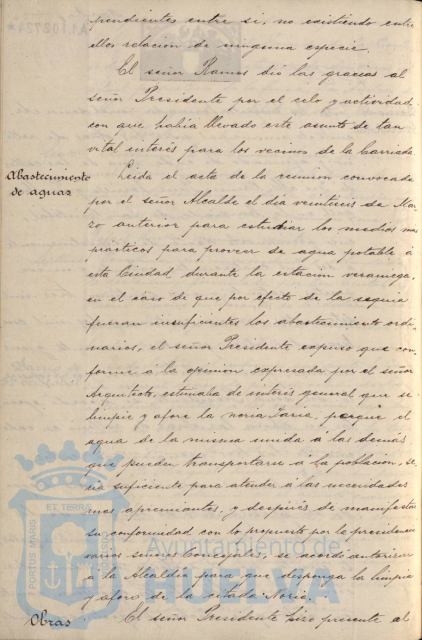 A1102724*
pendientes entre si, no existiendo entre
ellos relación de ninguna especie.
El señor Ramos dió las gracias al
señor Presidente por el celo y actividad
con que había llevado este asunto de tan
vital interés para los vecinos de la barriada.
Abastecimiento
de aguas
Leida el acta de la reunión convocada
por el señor Alcalde el día veintiseis de Mar
zo anterior para estudiar los medios mas
prácticos para proveer de agua potable á
esta Ciudad durante la estación veraniega,
en el caso de que por efecto de la sequia
fueran insuficientes los abastecimiento ordi
narios, el señor Presidente expuso que con
forme á la opinión expresada por el señor
Arquitecto, estimaba de interés general que se
limpie y afore la noria, porque el
agua de la misma unida á las demás
que pueden transportarse á la población, se
ria suficiente para atender á las necesidades
mas apremiantes, y después de manifestar
su conformidad con lo propuesto por la presidencia
varios señores Concejales, se acordó autorizar
á la Alcaldía para que disponga la limpia
y aforo de la citada Noria.
Obras
El señor Presidente hizo presente al
PORTUS MARIS
ET TERRÆ
CUSTODIO
Ayuntamiento de
HUELVA